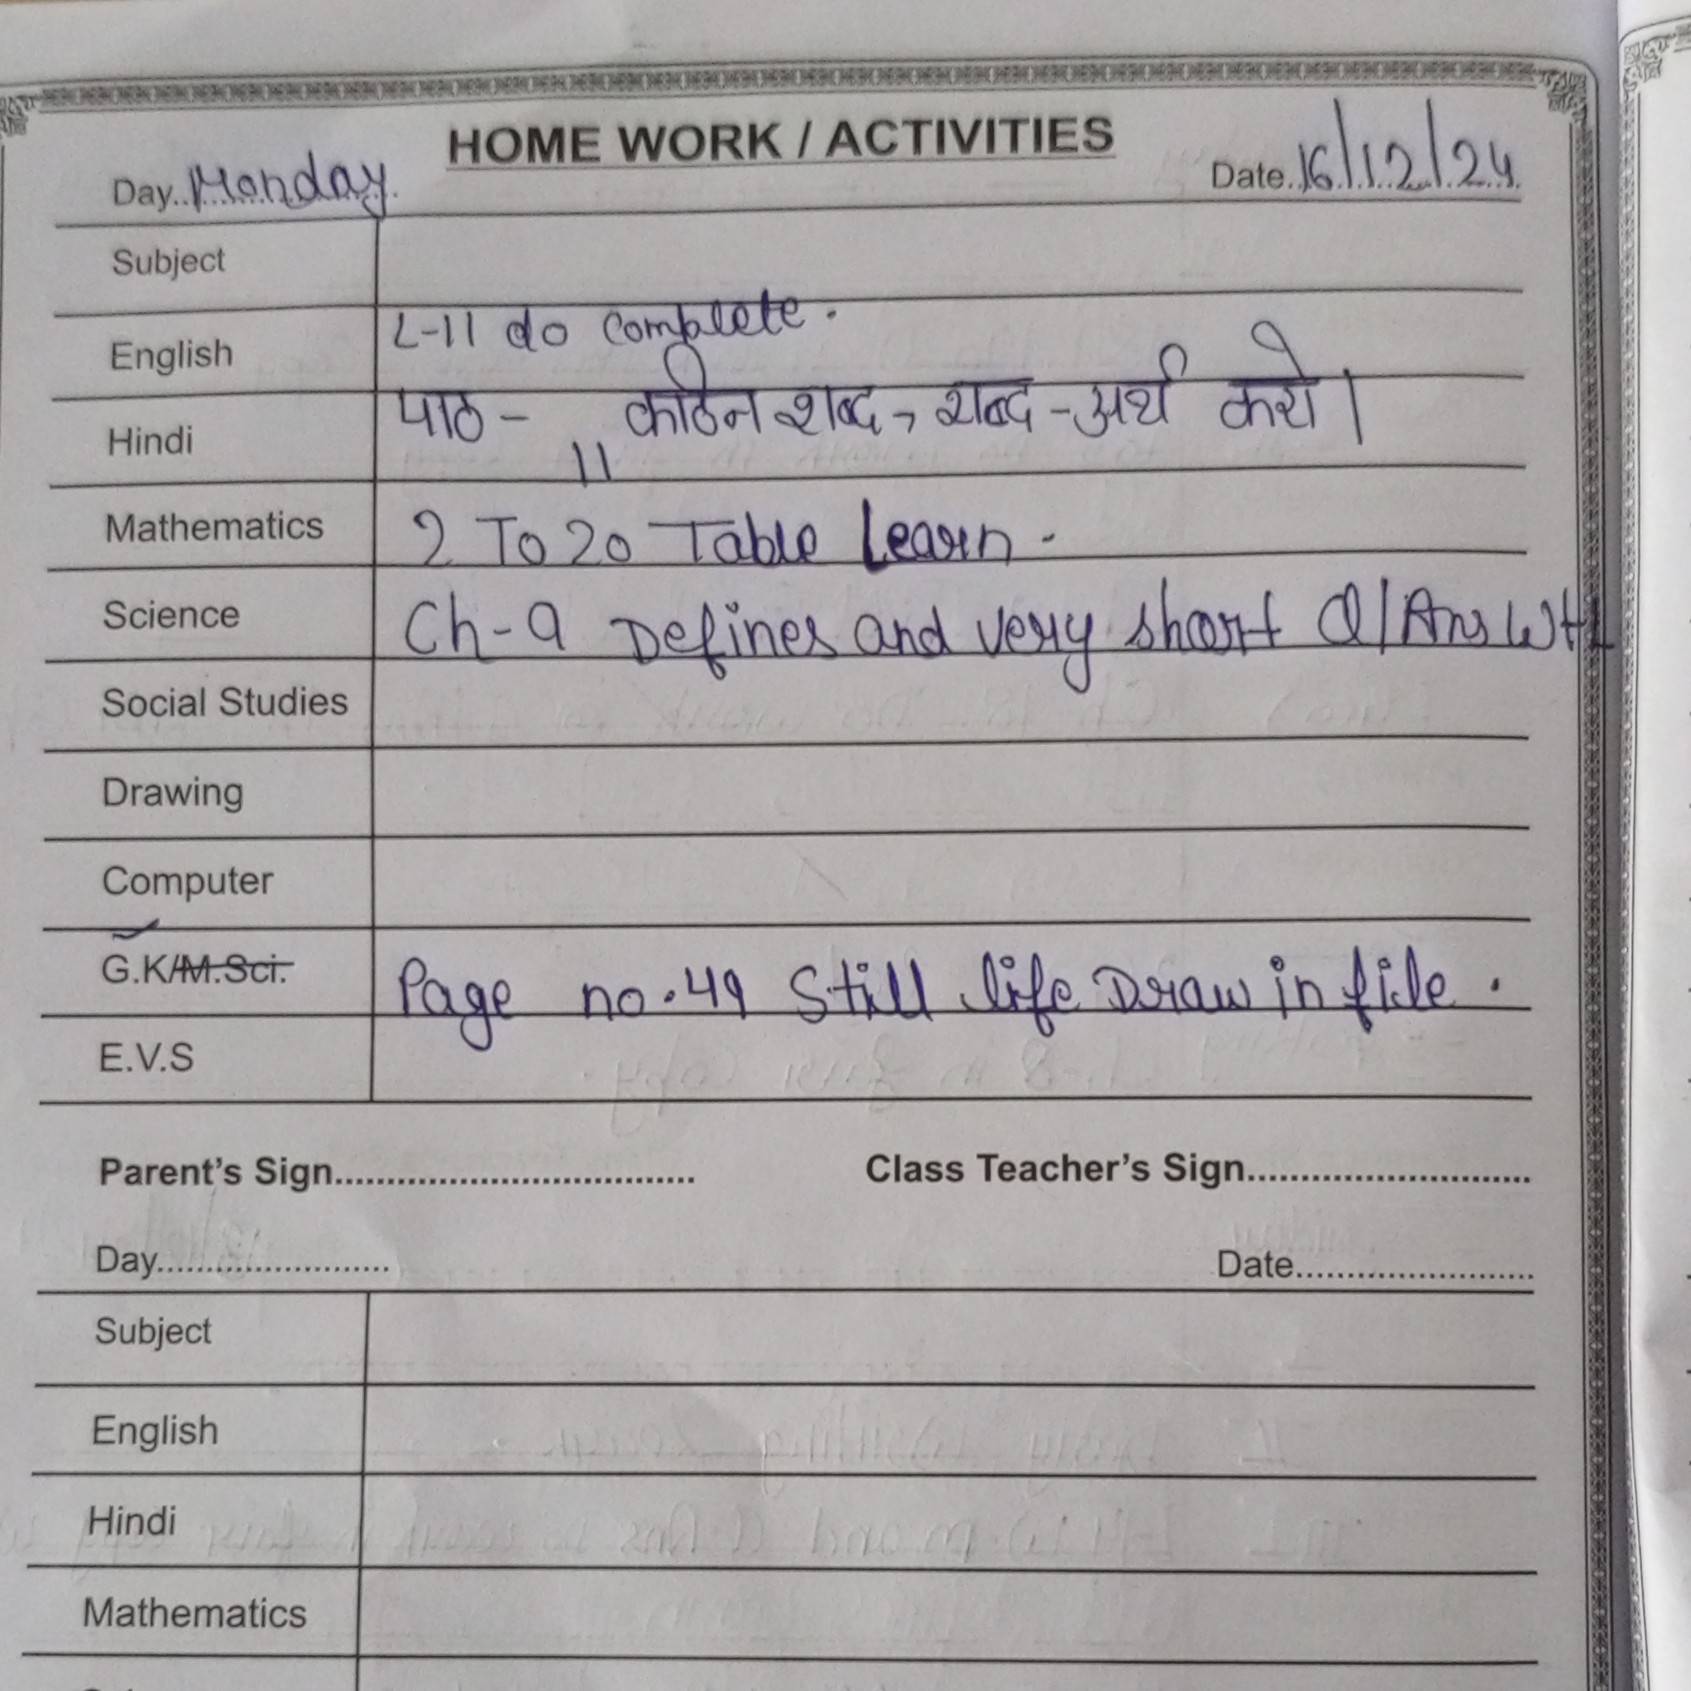 HOME WORK / ACTIVITIES
Day..Monday. Date..16/12/24
Subject
English L-11 do complete.
Hindi पाठ - 11 कठिन शब्द, शब्द - अर्थ करो।
Mathematics 2 To 20 Table Learn.
Science Ch-9 Defines and very short Q/Ans
Social Studies
Drawing
Computer
G.K/M.Sci. Page no.49 Still life Draw in file.
E.V.S
Parent's Sign................................... Class Teacher's Sign............................
Day........................ Date.........................
Subject
English
Hindi
Mathematics